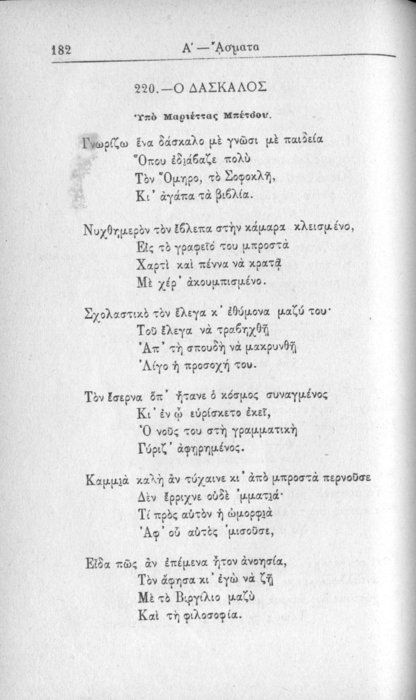 182
Α' — ᾌσματα
220. — Ο ΔΑΣΚΑΛΟΣ
Ὑπὸ Μαριέττας Μπέτσου.
Γνωρίζω ἕνα δάσκαλο μὲ γνῶσι μὲ παιδεία
Ὅπου ἐδιάβαζε πολὺ
Τὸν Ὅμηρο, τὸ Σοφοκλῆ,
Κι' ἀγάπα τὰ βιβλία.
Νυχθημερὸν τὸν ἔβλεπα στὴν κάμαρα κλεισμένο,
Εἰς τὸ γραφεῖό του μπροστὰ
Χαρτὶ καὶ πέννα νὰ κρατᾷ
Μὲ χέρ' ἀκουμπισμένο.
Σχολαστικὸ τὸν ἔλεγα κ' ἐθύμονα μαζύ του·
Τοῦ ἔλεγα νὰ τραβηχθῇ
Ἀπ' τὴ σπουδὴ νὰ μακρυνθῇ
Λίγο ἡ προσοχή του.
Τὸν ἔσερνα ὅπ' ἤτανε ὁ κόσμος συναγμένος
Κι' ἐν ᾧ εὑρίσκετο ἐκεῖ,
Ὁ νοῦς του στὴ γραμματικὴ
Γύριζ' ἀφηρημένος.
Καμμιὰ καλὴ ἂν τύχαινε κι' ἀπὸ μπροστὰ περνοῦσε
Δὲν ἔρριχνε οὐδὲ 'μματιά·
Τί πρὸς αὐτὸν ἡ ὠμορφιὰ
Ἀφ' οὗ αὐτὸς 'μισοῦσε,
Εἶδα πῶς ἂν ἐπέμενα ἦτον ἀνοησία,
Τὸν ἄφησα κι' ἐγὼ νὰ ζῇ
Μὲ τὸ Βιργίλιο μαζὺ
Καὶ τὴ φιλοσοφία.